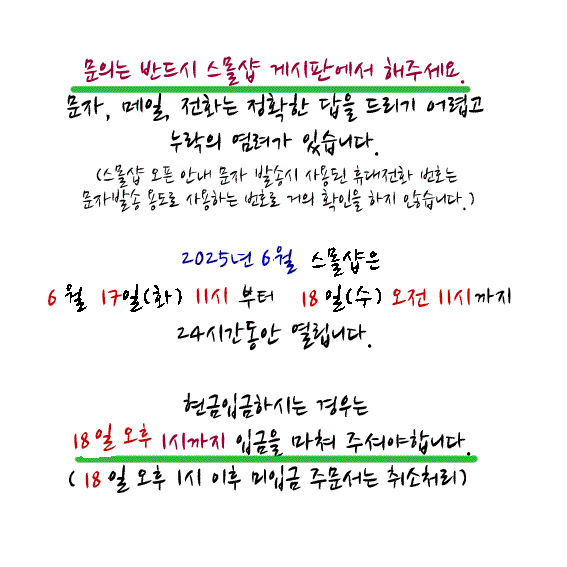 문의는 반드시 스몰샵 게시판에서 해주세요.
문자, 메일, 전화는 정확한 답을 드리기 어렵고
누락의 염려가 있습니다.
(스몰샵 오픈 안내 문자 발송시 사용된 휴대전화 번호는
문자발송 용도로 사용하는 번호로 거의 확인을 하지 않습니다.)
2025년 6월 스몰샵은
6월 17일(화) 11시 부터 18일(수) 오전 11시까지
24시간동안 열립니다.
현금입금하시는 경우는
18일 오후 1시까지 입금을 마쳐 주셔야합니다.
(18일 오후 1시 이후 미입금 주문서는 취소처리)